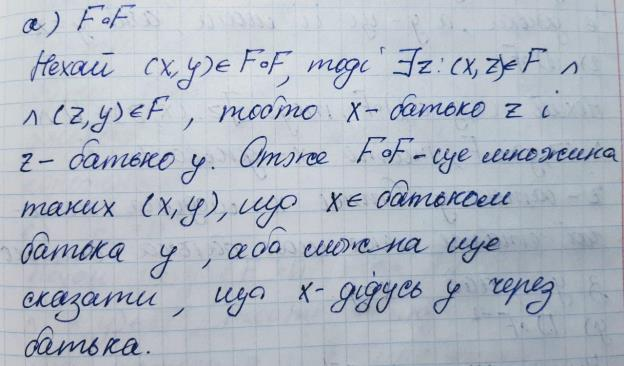 а) F∘F
Нехай (x,y)∈F∘F, тоді ∃z:(x,z)∈F ∧
∧ (z,y)∈F, тобто x-батько z і
z-батько y. Отже F∘F-це множина
таких (x,y), що x є батьком
батька y, або можна ще
сказати, що x-дідусь y через
батька.